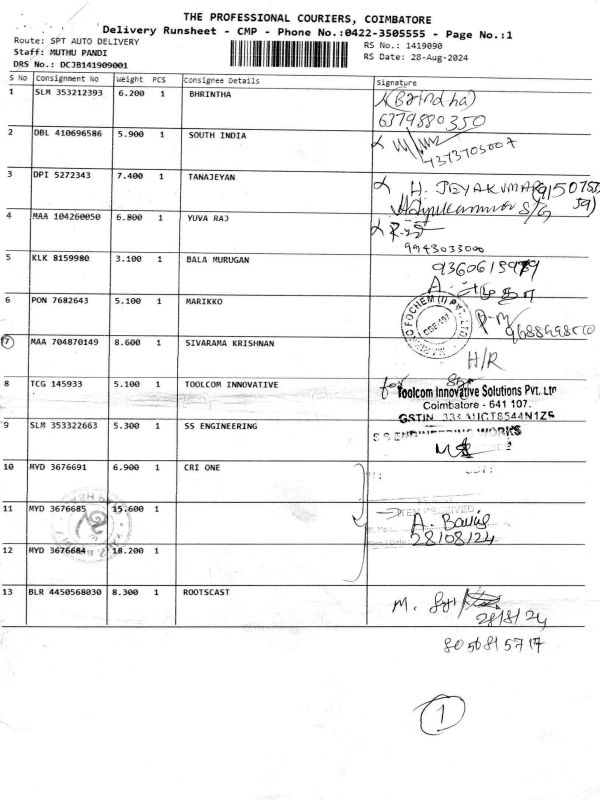 THE PROFESSIONAL COURIERS, COIMBATORE
Delivery Runsheet - CMP - Phone No.:0422-3505555 - Page No.:1
Route: SPT AUTO DELIVERY
RS No.: 1419090
Staff: MUTHU PANDI
RS Date: 28-Aug-2024
DRS No.: DCJB141909001
S No Consignment No Weight PCS Consignee Details Signature
1 SLM 353212393 6.200 1 BHRINTHA (Brindha)
6379880350
2 DBL 410696586 5.900 1 SOUTH INDIA
3 DPI 5272343 7.400 1 TANAJEYAN H. JEYAKUMAR
4 MAA 104260050 6.800 1 YUVA RAJ
9943033000
5 KLK 8159980 3.100 1 BALA MURUGAN
6 PON 7682643 5.100 1 MARIKKO
7 MAA 704870149 8.600 1 SIVARAMA KRISHNAN H/R
8 TCG 145933 5.100 1 TOOLCOM INNOVATIVE for
Toolcom Innovative Solutions Pvt. Ltd
Coimbatore - 641 107.
9 SLM 353322663 5.300 1 SS ENGINEERING S S ENGINEERING WORKS
10 MYD 3676691 6.900 1 CRI ONE
11 MYD 3676685 15.600 1
28/08/24
12 MYD 3676684 18.200 1
13 BLR 4450568030 8.300 1 ROOTSCAST M.
28/8/24
8056815717
1